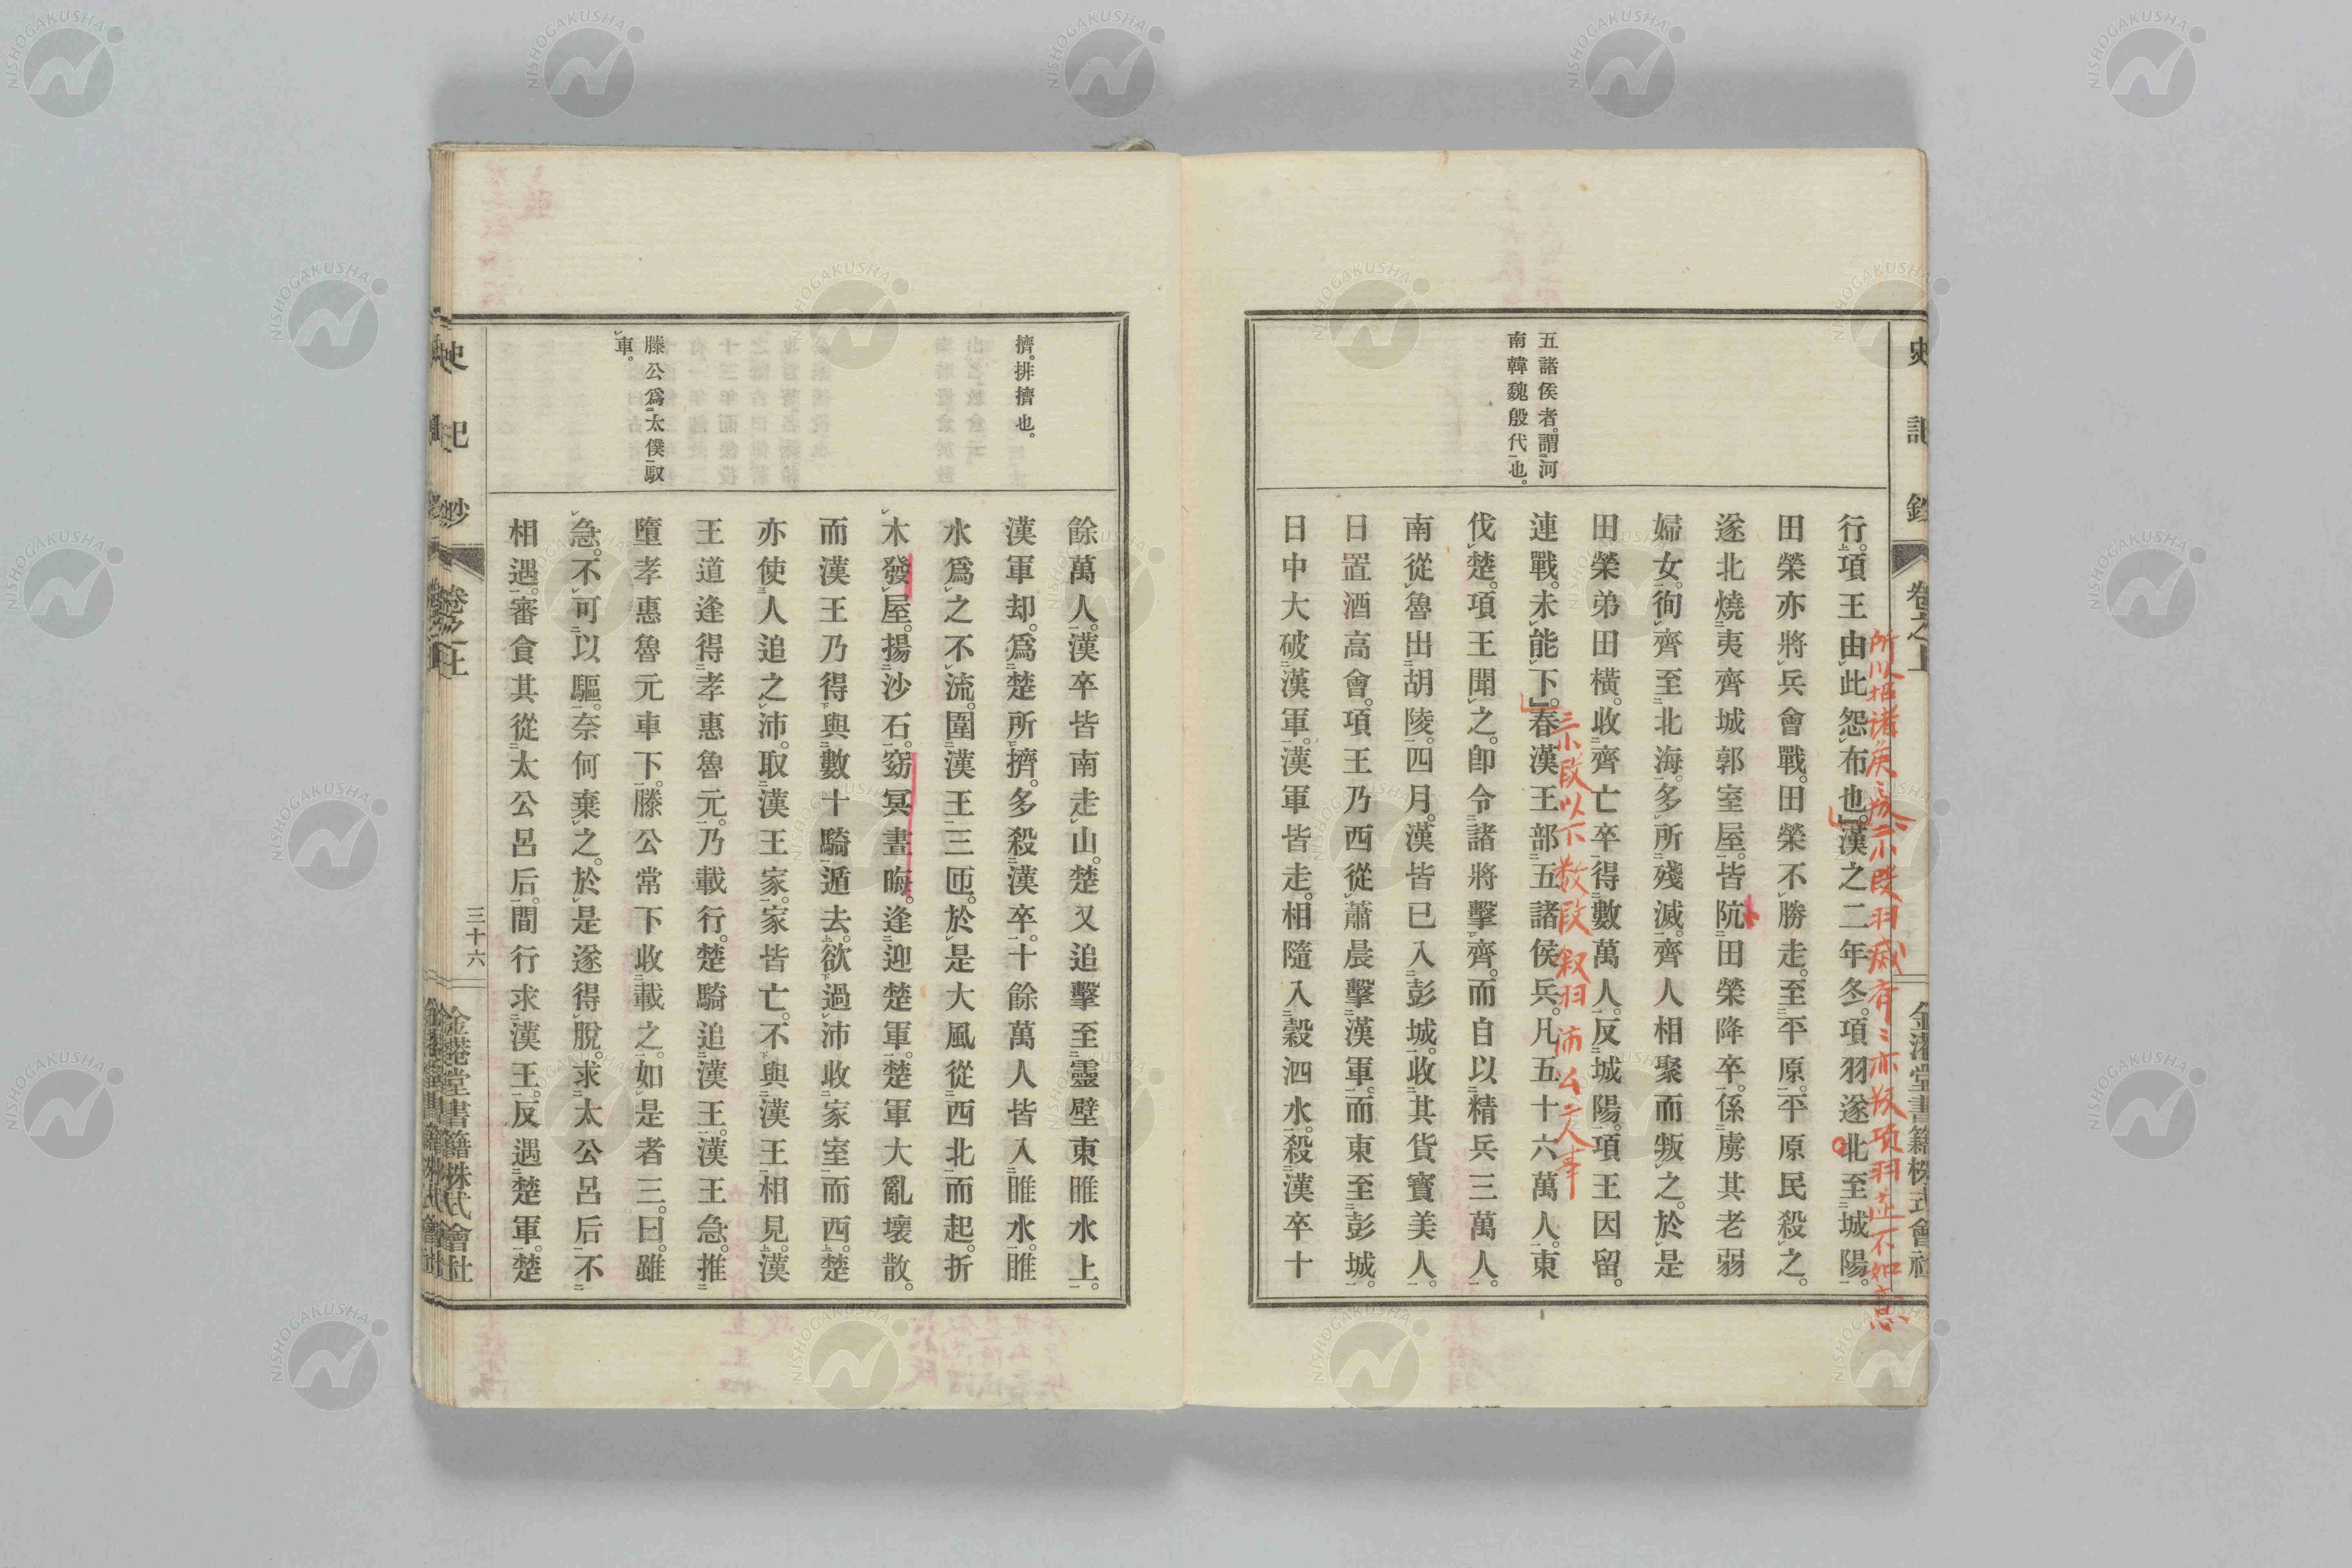 史記鈔 卷之上 金港堂書籍株式會社
五諸侯者。謂河
南韓魏殷代也。
行。項王由此怨布也。』漢之二年冬。項羽遂北至城陽。
田榮亦將兵會戰。田榮不勝走。至平原。平原民殺之。
遂北燒夷齊城郭室屋。皆阬田榮降卒。係虜其老弱
婦女。徇齊至北海。多所殘滅。齊人相聚而叛之。於是
田榮弟田橫。收齊亡卒得數萬人。反城陽。項王因留。
連戰。未能下。』春漢王部五諸侯兵。凡五十六萬人。東
伐楚。項王聞之。卽令諸將擊齊。而自以精兵三萬人。
南從魯出胡陵。四月。漢皆已入彭城。收其貨寶美人。
日置酒高會。項王乃西從蕭晨擊漢軍。而東至彭城。
日中大破漢軍。漢軍皆走。相隨入穀泗水。殺漢卒十
三小段以下數段叙羽沛公二人事
擠。排擠也。
滕公爲太僕馭
車。
餘萬人。漢卒皆南走山。楚又追擊至靈壁東睢水上。
漢軍却。爲楚所擠。多殺漢卒。十餘萬人皆入睢水。睢
水爲之不流。圍漢王三匝。於是大風從西北而起。折
木發屋。揚沙石。窈冥晝晦。逢迎楚軍。楚軍大亂壞散。
而漢王乃得與數十騎遁去。欲過沛收家室而西。楚
亦使人追之沛。取漢王家。家皆亡。不與漢王相見。漢
王道逢得孝惠魯元。乃載行。楚騎追漢王。漢王急。推
墮孝惠魯元車下。滕公常下收載之。如是者三。曰。雖
急。不可以驅。奈何棄之。於是遂得脫。求太公呂后不
相遇。審食其從太公呂后。間行求漢王。反遇楚軍。楚
史記鈔 卷之上 三十六 金港堂書籍株式會社